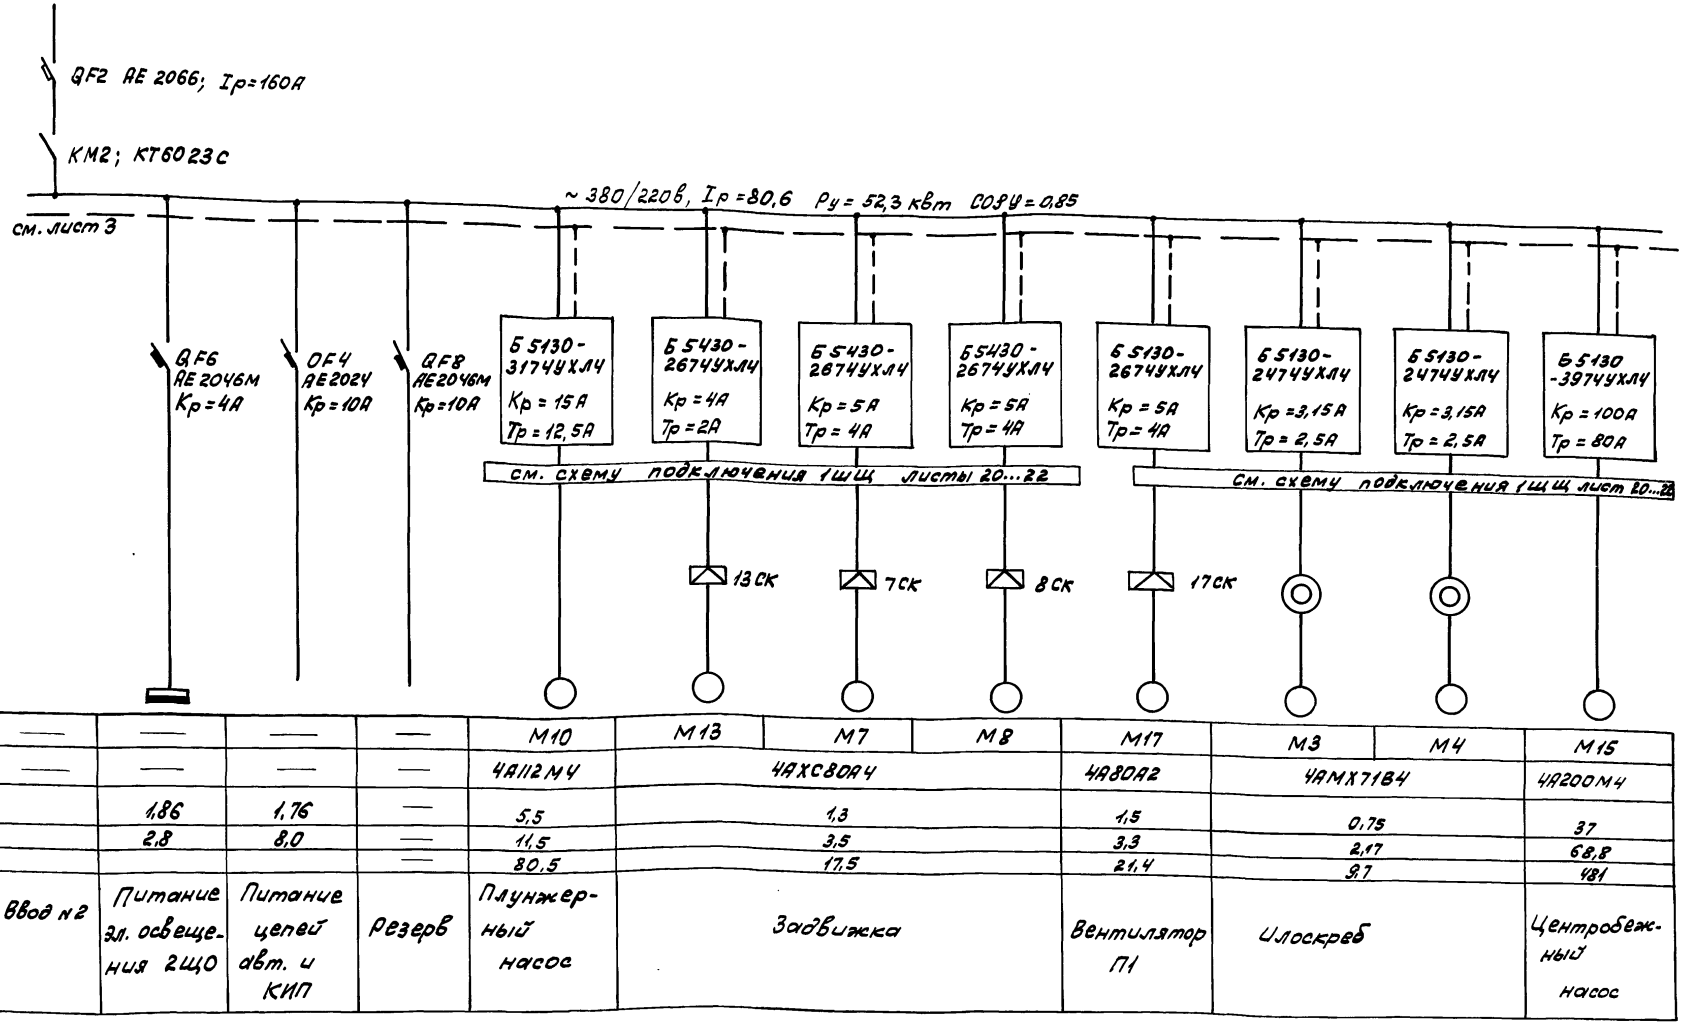 QF2 АЕ 2066; Iр=160А
КМ2; КТ6023С
~380/220в, Iр=80,6 Ру=52,3 квт COSφ=0,85
см. лист 3
QF6
АЕ2046М
Кр=4А
QF4
АЕ2024
Кр=10А
QF8
АЕ2046М
Кр=10А
Б5130-
3174УХЛ4
Кр=15А
Тр=12,5А
Б5430-
2674УХЛ4
Кр=4А
Тр=2А
Б5430-
2674УХЛ4
Кр=5А
Тр=4А
Б5430-
2674УХЛ4
Кр=5А
Тр=4А
Б5130-
2674УХЛ4
Кр=5А
Тр=4А
Б5130-
2474УХЛ4
Кр=3,15А
Тр=2,5А
Б5130-
2474УХЛ4
Кр=3,15А
Тр=2,5А
Б5130
-3974УХЛ4
Кр=100А
Тр=80А
см. схему подключения 1ШЩ листы 20...22
см. схему подключения 1ЩЩ лист 20...22
13СК
7СК
8СК
17СК
— — — — М10 М13 М7 М8 М17 М3 М4 М15
— — — — 4А112М4 4АХС80А4 4А80А2 4АМХ71В4 4А200М4
1,86 1,76 — 5,5 1,3 1,5 0,75 37
2,8 8,0 — 11,5 3,5 3,3 2,17 68,8
— 80,5 17,5 21,4 9,7 481
Ввод №2
Питание
эл. освеще-
ния 2ЩО
Питание
цепей
авт. и
КИП
Резерв
Плунжер-
ный
насос
Задвижка
Вентилятор
П1
Илоскреб
Центробеж-
ный
насос